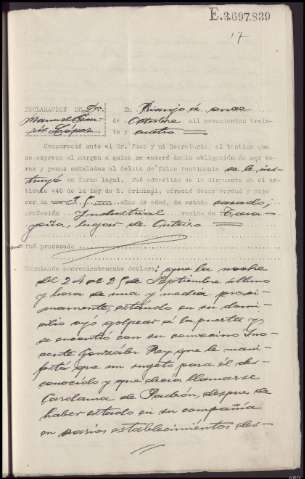 E.3697,839
17
DECLARACIÓN DE D.
Manuel
López
En Rianjo á once
de Octubre mil novecientos trein-
ta y cuatro
Compareció ante el Sr. Juez y mi Secretario, el testigo que
se expresa al margen a quien se enteró de la obligación de ser ve-
raz y penas señaladas al delito de falso testimonio
en forma legal,
artículo 446 de la ley de E. Criminal,
años de edad, de estado casado,
profesión Industrial vecino de
lugar de
fué procesado
Y siendo convenientemente declara: que la noche
del 24 al 25 de Septiembre último
y hora de una y media proxi-
mamente, estando en su domi-
cilio oyó golpear á la puerta y
se encontró con su convecino
González Rey que le mani-
festó que un sujeto para él des-
conocido y que decía llamarse
Cardama de Padrón, después de
haber estado en su compañía
en varios establecimientos des-